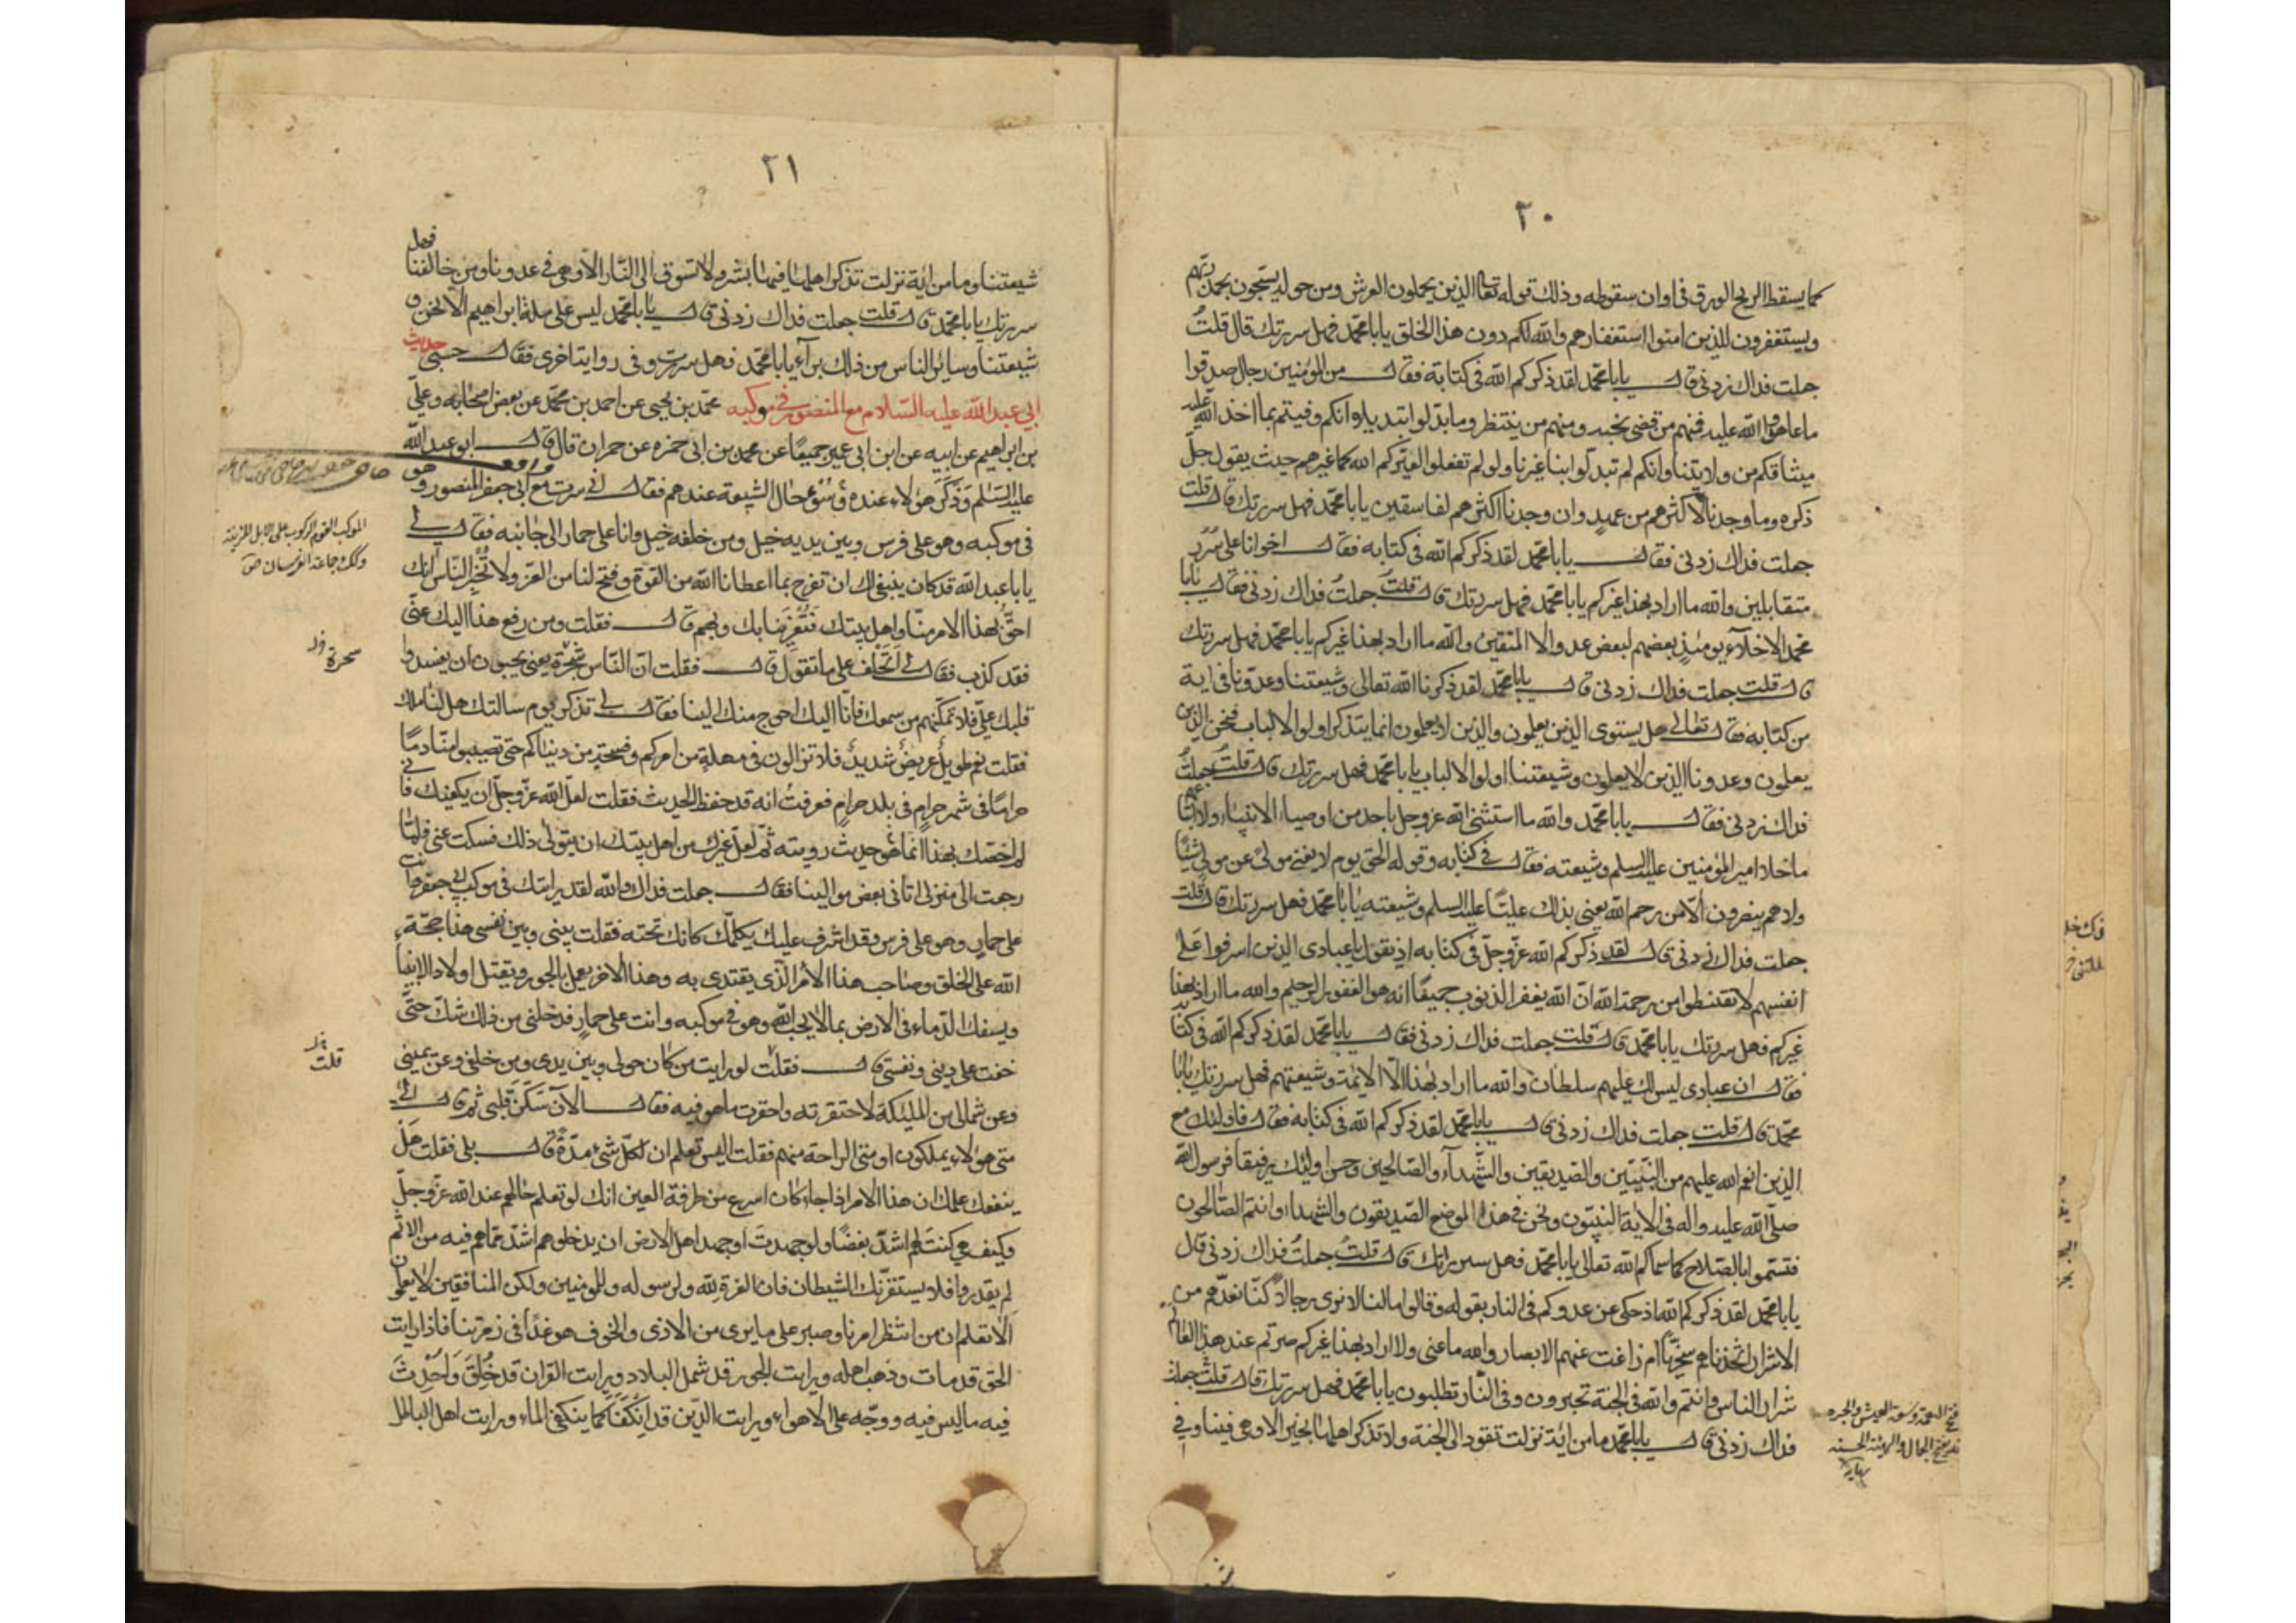 ٢٠
كما يسقط الريح الورق فى اوان سقوطه وذلك قوله تعالى الذين يحملون العرش ومن حوله يسبحون بحمد ربهم
ويستغفرون للذين امنوا استغفارهم والله لكم دون هذا الخلق يا با محمد فهل سررتك قال قلت
جعلت فداك زدنى قال يا با محمد لقد ذكركم الله فى كتابه فقال من المؤمنين رجال صدقوا
ما عاهدوا الله عليه فمنهم من قضى نحبه ومنهم من ينتظر وما بدلوا تبديلا وانكم وفيتم بما اخذ الله عليه
ميثاقكم من ولايتنا وانكم لم تبدلوا بنا غيرنا ولو لم تفعلوا لعيركم الله كما عيرهم حيث يقول جل
ذكره وما وجدنا لاكثرهم من عهد وان وجدنا اكثرهم لفاسقين يا با محمد فهل سررتك قال قلت
جعلت فداك زدنى فقال يا با محمد لقد ذكركم الله فى كتابه فقال اخوانا على سرر
متقابلين والله ما اراد بهذا غيركم يا با محمد فهل سررتك قال قلت جعلت فداك زدنى فقال يا با
محمد الاخلاء يومئذ بعضهم لبعض عدو الا المتقين والله ما اراد بهذا غيركم يا با محمد فهل سررتك
قال قلت جعلت فداك زدنى قال يا با محمد لقد ذكرنا الله تعالى وشيعتنا وعدونا فى اية
من كتابه فقال تعالى هل يستوى الذين يعلمون والذين لا يعلمون انما يتذكر اولوا الالباب فنحن الذين
يعلمون وعدونا الذين لا يعلمون وشيعتنا اولوا الالباب يا با محمد فهل سررتك قال قلت جعلت
فداك زدنى فقال يا با محمد والله ما استثنى الله عز وجل باحد من اوصياء الانبياء ولا اتباعهم
ما خلا امير المؤمنين عليه السلم وشيعته فقال فى كتابه وقوله الحق يوم لا يغنى مولى عن مولى شيئا
ولا هم ينصرون الا من رحم الله يعنى بذلك عليا عليه السلم وشيعته يا با محمد فهل سررتك قال قلت
جعلت فداك زدنى قال لقد ذكركم الله عز وجل فى كتابه اذ يقول يا عبادى الذين اسرفوا على
انفسهم لا تقنطوا من رحمة الله ان الله يغفر الذنوب جميعا انه هو الغفور الرحيم والله ما اراد بهذا
غيركم فهل سررتك يا با محمد قال قلت جعلت فداك زدنى فقال يا با محمد لقد ذكركم الله فى كتابه
فقال ان عبادى ليس لك عليهم سلطان والله ما اراد بهذا الا الائمة وشيعتهم فهل سررتك يا با
محمد قال قلت جعلت فداك زدنى قال يا با محمد لقد ذكركم الله فى كتابه فقال فاولئك مع
الذين انعم الله عليهم من النبيين والصديقين والشهداء والصالحين وحسن اولئك رفيقا فرسول الله
صلى الله عليه واله فى الاية النبيون ونحن فى هذا الموضع الصديقون والشهداء وانتم الصالحون
فتسموا بالصلاح كما سماكم الله تعالى يا با محمد فهل سررتك قال قلت جعلت فداك زدنى قال
يا با محمد لقد ذكركم الله اذ حكى عن عدوكم فى النار بقوله وقالوا ما لنا لا نرى رجالا كنا نعدهم من
الاشرار اتخذناهم سخريا ام زاغت عنهم الابصار والله ما عنى ولا اراد بهذا غيركم صرتم عند هذا العالم
شرار الناس وانتم والله فى الجنة تحبرون وفى النار تطلبون يا با محمد فهل سررتك قال قلت جعلت
فداك زدنى قال يا با محمد ما من اية نزلت تقود الى الجنة ولا تذكر اهلها بخير الا وهى فينا وفى
٢١
شيعتنا وما من اية نزلت تذكر اهلها فيها بشر ولا تسوق الى النار الا وهى فى عدونا ومن خالفنا فهل
سررتك يا با محمد قال قلت جعلت فداك زدنى قال يا با محمد ليس على ملة ابراهيم الا نحن و
شيعتنا وسائر الناس من ذلك برآء يا با محمد فهل سررتك وفى رواية اخرى فقال حسبى حديث
ابى عبد الله عليه السلام مع المنصور فى موكبه محمد بن يحيى عن احمد بن محمد عن بعض اصحابه وعلى
بن ابراهيم عن ابيه عن ابن ابى عمير جميعا عن محمد بن ابى حمزه عن حمران قال قال ابو عبد الله
عليه السلم وذكر هولاء عنده وسوء حال الشيعة عندهم فقال انى سرت مع ابى جعفر المنصور وهو
فى موكبه وهو على فرس وبين يديه خيل ومن خلفه خيل وانا على حمار الى جانبه فقال لى
يا با عبد الله قد كان ينبغى لك ان تفرح بما اعطانا الله من القوة وفتح لنا من العز ولا تخبر الناس انك
احق بهذا الامر منا واهل بيتك فتغرينا بك وبهم قال فقلت ومن رفع هذا اليك عنى
فقد كذب فقال لى اتحلف على ما تقول قال فقلت ان الناس شجرة يعنى يحبون ان يفسدوا
قلبك على فلا تمكنهم من سمعك فانا اليك احوج منك الينا فقال لى تذكر يوم سالتك هل لنا ملك
فقلت نعم طويل عريض شديد فلا تزالون فى مهلة من امركم وفسحة من دنياكم حتى تصيبوا منا دما
حراما فى شهر حرام فى بلد حرام فعرفت انه قد حفظ الحديث فقلت لعل الله عز وجل ان يكفيك فانى
لم اخصك بهذا انما هو حديث رويته ثم لعل غيرك من اهل بيتك ان يتولى ذلك فسكت عنى فلما
رجعت الى منزلى اتانى بعض موالينا فقال جعلت فداك والله لقد رايتك فى موكب ابى جعفر وانت
على حمار وهو على فرس وقد اشرف عليك يكلمك كانك تحته فقلت بينى وبين نفسى هذا حجة
الله على الخلق وصاحب هذا الامر الذى يقتدى به وهذا الاخر يعمل بالجور ويقتل اولاد الانبياء
ويسفك الدماء فى الارض بما لا يحب الله وهو فى موكبه وانت على حمار فدخلنى من ذلك شك حتى
خفت على دينى ونفسى قال فقلت لو رايت من كان حولى وبين يدى ومن خلفى وعن يمينى
وعن شمالى من المليكة لاحتقرته واحقرت ما هو فيه فقال الآن سكن قلبى ثم قال الى
متى هولاء يملكون او متى الراحة منهم فقلت اليس تعلم ان لكل شىء مدة قال بلى فقلت هل
ينفعك علمك ان هذا الامر اذا جاء كان اسرع من طرفة العين انك لو تعلم حالهم عند الله عز وجل
وكيف هى كنت لهم اشد بغضا ولو جهدت او جهد اهل الارض ان يدخلوهم اشد مما هم فيه من الاثم
لم يقدروا فلا يستفزنك الشيطان فان العزة لله ولرسوله وللمومنين ولكن المنافقين لا يعلمون
الا تعلم ان من انتظر امرنا وصبر على ما يرى من الاذى والخوف هو غدا فى زمرتنا فاذا رايت
الحق قد مات وذهب اهله ورايت الجور قد شمل البلاد ورايت القران قد خلق واحدث
فيه ما ليس فيه ووجه على الاهواء ورايت الدين قد انكفا كما ينكفى الماء ورايت اهل الباطل
الموكب القوم الركوب على الابل للزينة
وكذلك جماعة الفرسان
سحرة
قلت